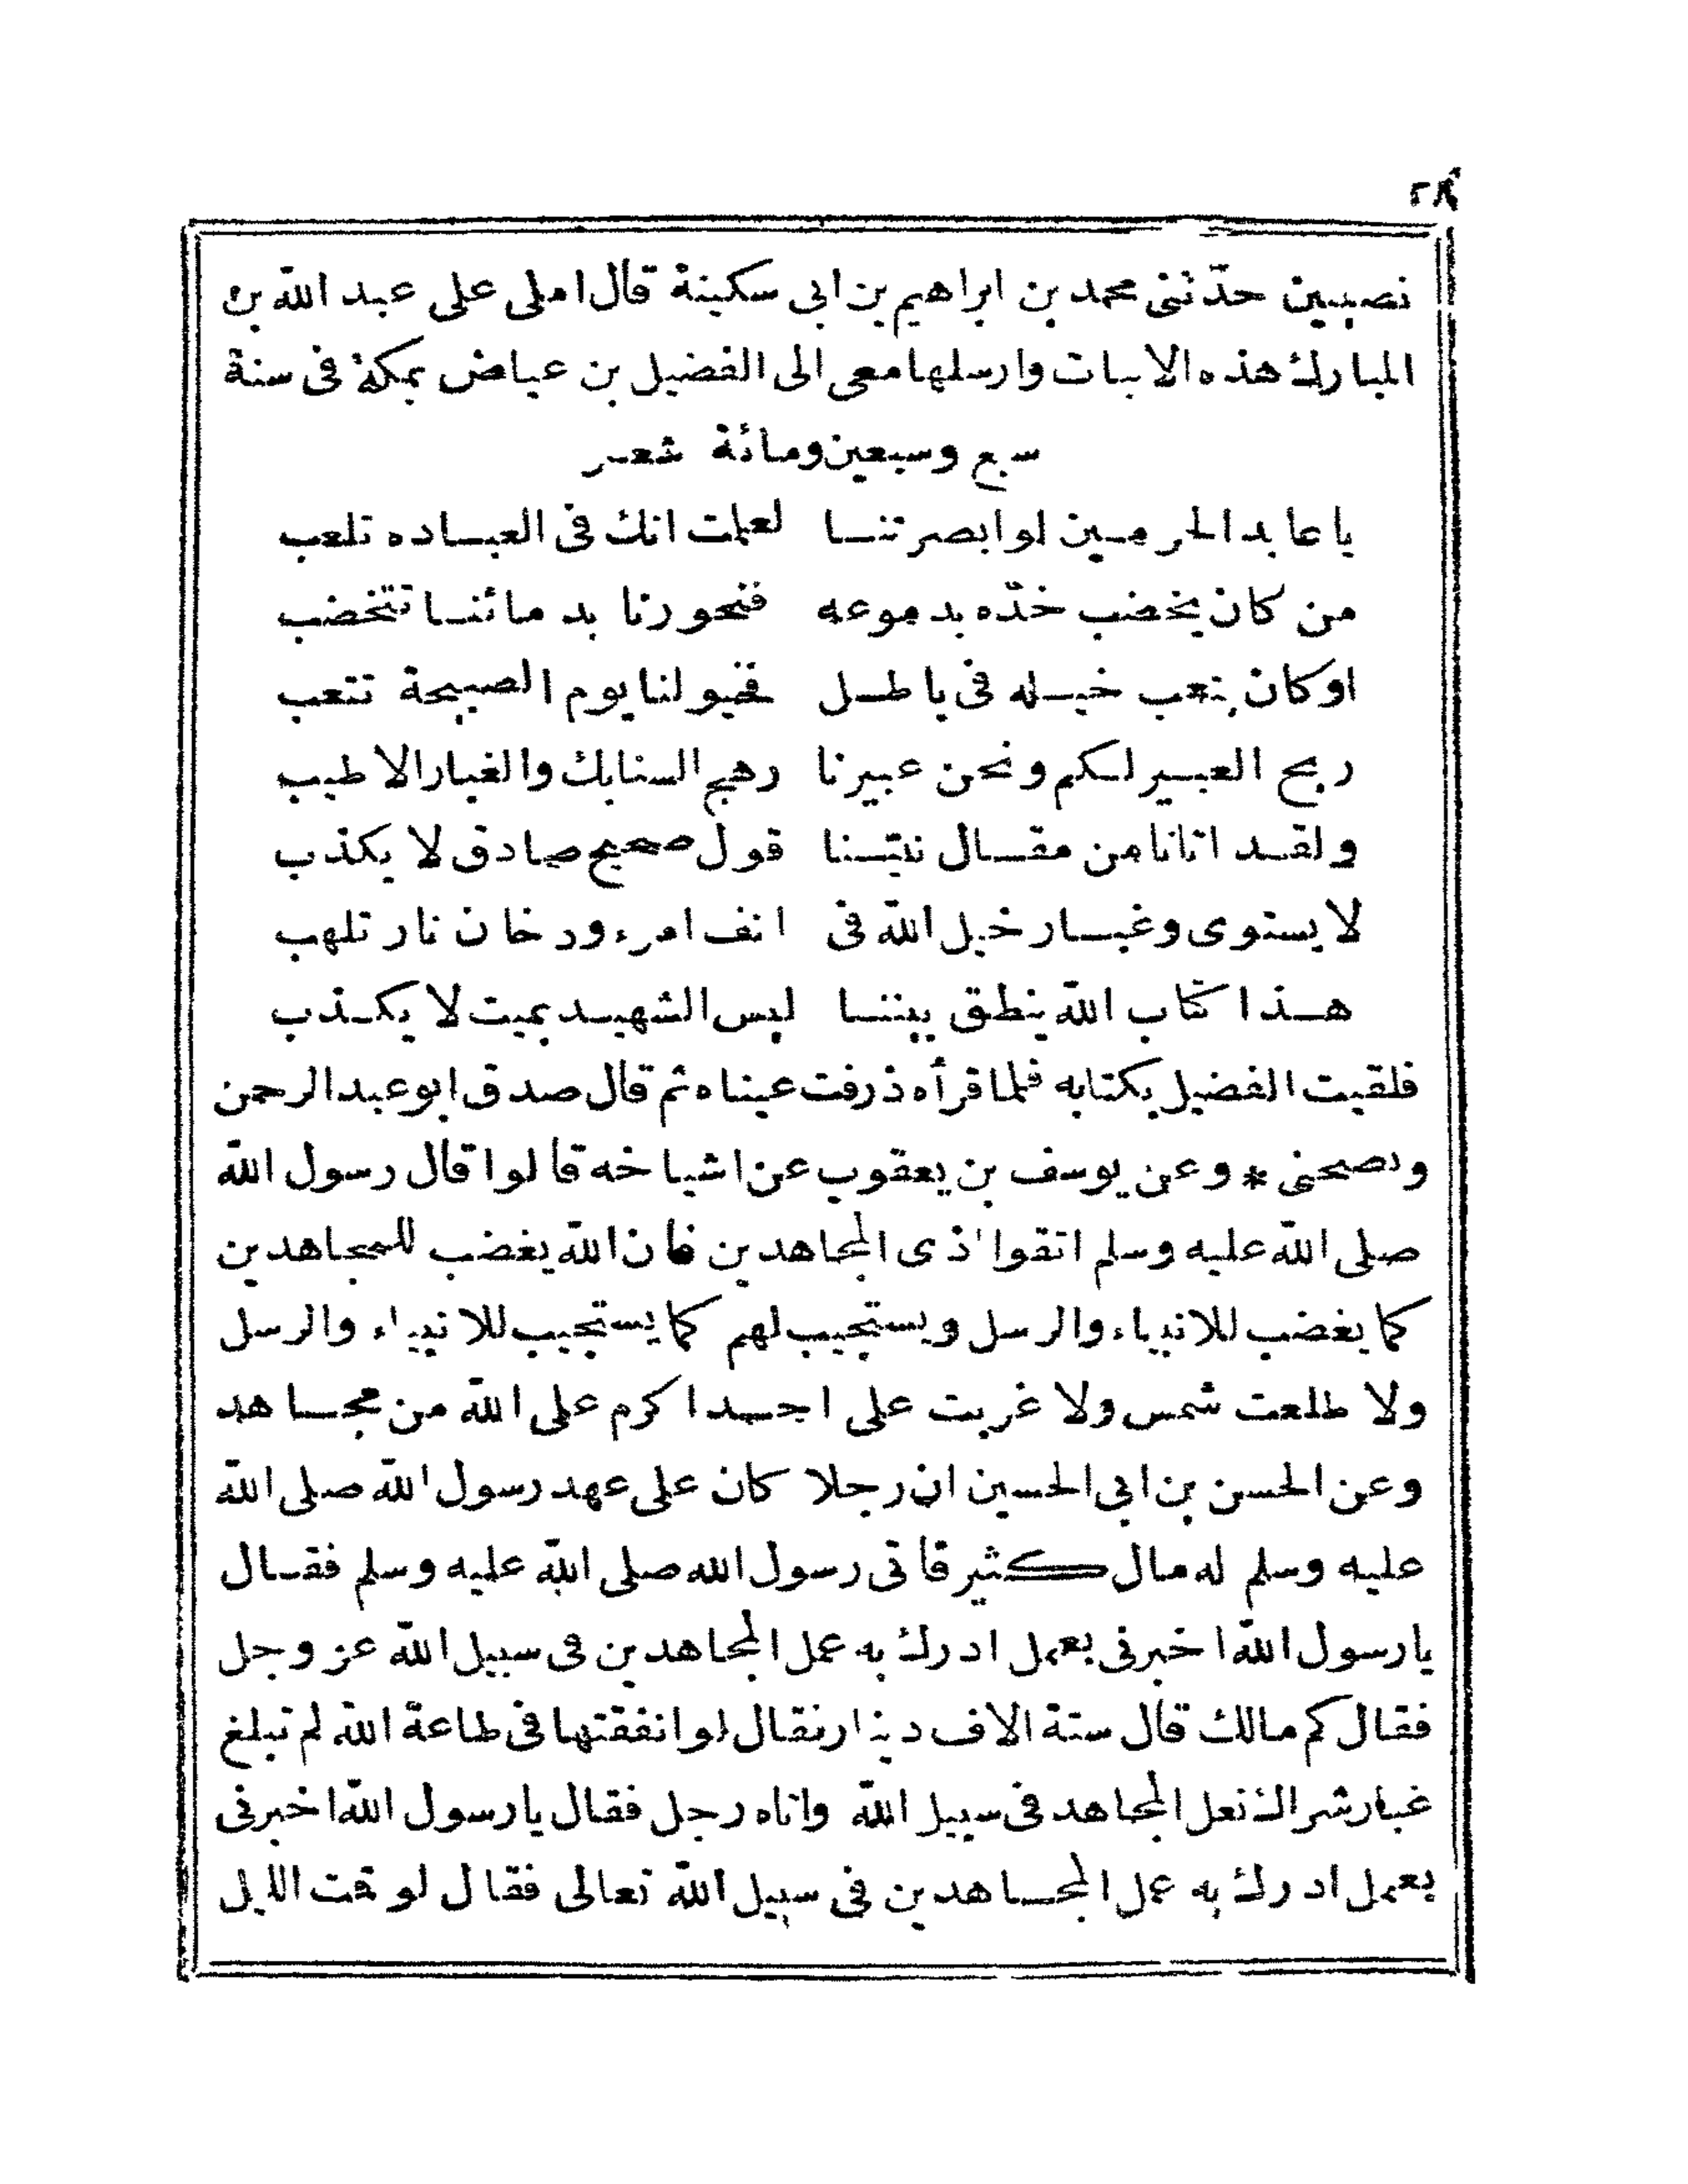 ٢٨
نصيبين حدّثنى محمد بن ابراهيم بن ابى سكينة قال املى على عبد الله بن
المبارك هذه الابيات وارسلها معى الى الفضيل بن عياض بمكة فى سنة
سبع وسبعين ومائة شعر
يا عابد الحرمين لو ابصرتنا لعلمت انك فى العباده تلعب
من كان يخضب خدّه بدموعه فنحورنا بدمائنا تتخضب
او كان يتعب خيله فى باطل فخيولنا يوم الصبيحة تتعب
ريح العبير لكم ونحن عبيرنا رهج السنابك والغبار الاطيب
ولقد اتانا من مقال نبيّنا قول صحيح صادق لا يكذب
لا يستوى وغبار خيل الله فى انف امرء ودخان نار تلهب
هذا كتاب الله ينطق بيننا ليس الشهيد بميت لا يكذب
فلقيت الفضيل بكتابه فلما قرأه ذرفت عيناه ثم قال صدق ابو عبد الرحمن
ونصحنى * وعن يوسف بن يعقوب عن اشياخه قالوا قال رسول الله
صلى الله عليه وسلم اتقوا اذى المجاهدين فان الله يغضب للمجاهدين
كما يغضب للانبياء والرسل ويستجيب لهم كما يستجيب للانبياء والرسل
ولا طلعت شمس ولا غربت على احد اكرم على الله من مجاهد
وعن الحسن بن ابى الحسين ان رجلا كان على عهد رسول الله صلى الله
عليه وسلم له مال كثير فاتى رسول الله صلى الله عليه وسلم فقال
يا رسول الله اخبرنى بعمل ادرك به عمل المجاهدين فى سبيل الله عز وجل
فقال كم مالك قال ستة الاف دينار فقال لو انفقتها فى طاعة الله لم تبلغ
غبار شراك نعل المجاهد فى سبيل الله واتاه رجل فقال يا رسول الله اخبرنى
بعمل ادرك به عمل المجاهدين فى سبيل الله تعالى فقال لو قمت الليل